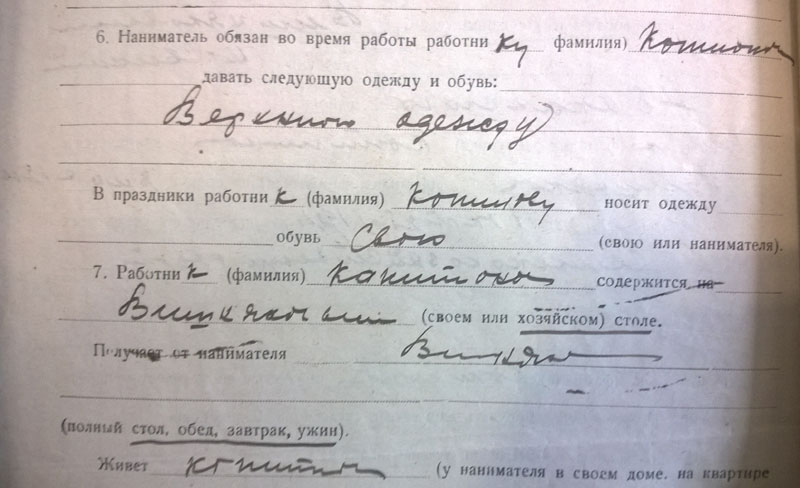 6. Наниматель обязан во время работы работни ку фамилия)
давать следующую одежду и обувь:
Верхнюю одежду
В праздники работни к (фамилия) носит одежду
обувь свою (свою или нанимателя).
7. Работни к (фамилия) содержится на
(своем или хозяйском) столе.
Получает от нанимателя
(полный стол, обед, завтрак, ужин).
Живет (у нанимателя в своем доме. на квартире